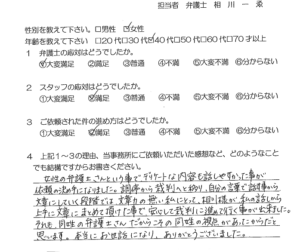 担当者　弁護士　相川一
性別を教えて下さい。□男性　☑女性
年齢を教えて下さい。□20代□30代☑40代□50代□60代□70才以上
1　弁護士の応対はどうでしたか。
①大変満足　②満足　③普通　④不満　⑤大変不満　⑥分からない
2　スタッフの応対はどうでしたか。
①大変満足　②満足　③普通　④不満　⑤大変不満　⑥分からない
3　ご依頼された件の進め方はどうでしたか。
①大変満足　②満足　③普通　④不満　⑤大変不満　⑥分からない
4　上記1～3の理由、当事務所にご依頼いただいた感想など、どのようなこと
でも結構ですからお書きください。
女性の弁護士さんという事でデリケートな内容も話しやすかった事が
依頼の決め手になりました。調停から裁判へと移り、自分の言葉で
文章にしていく段階では文章力の無い私にとって、相川様が私の話から
上手に文章にまとめて頂けた事で、安心して裁判に進めて行く事が出来ました。
それも、同性の弁護士さんだからこその同性の視点があったからだと
思います。本当にお世話になり、ありがとうございました。